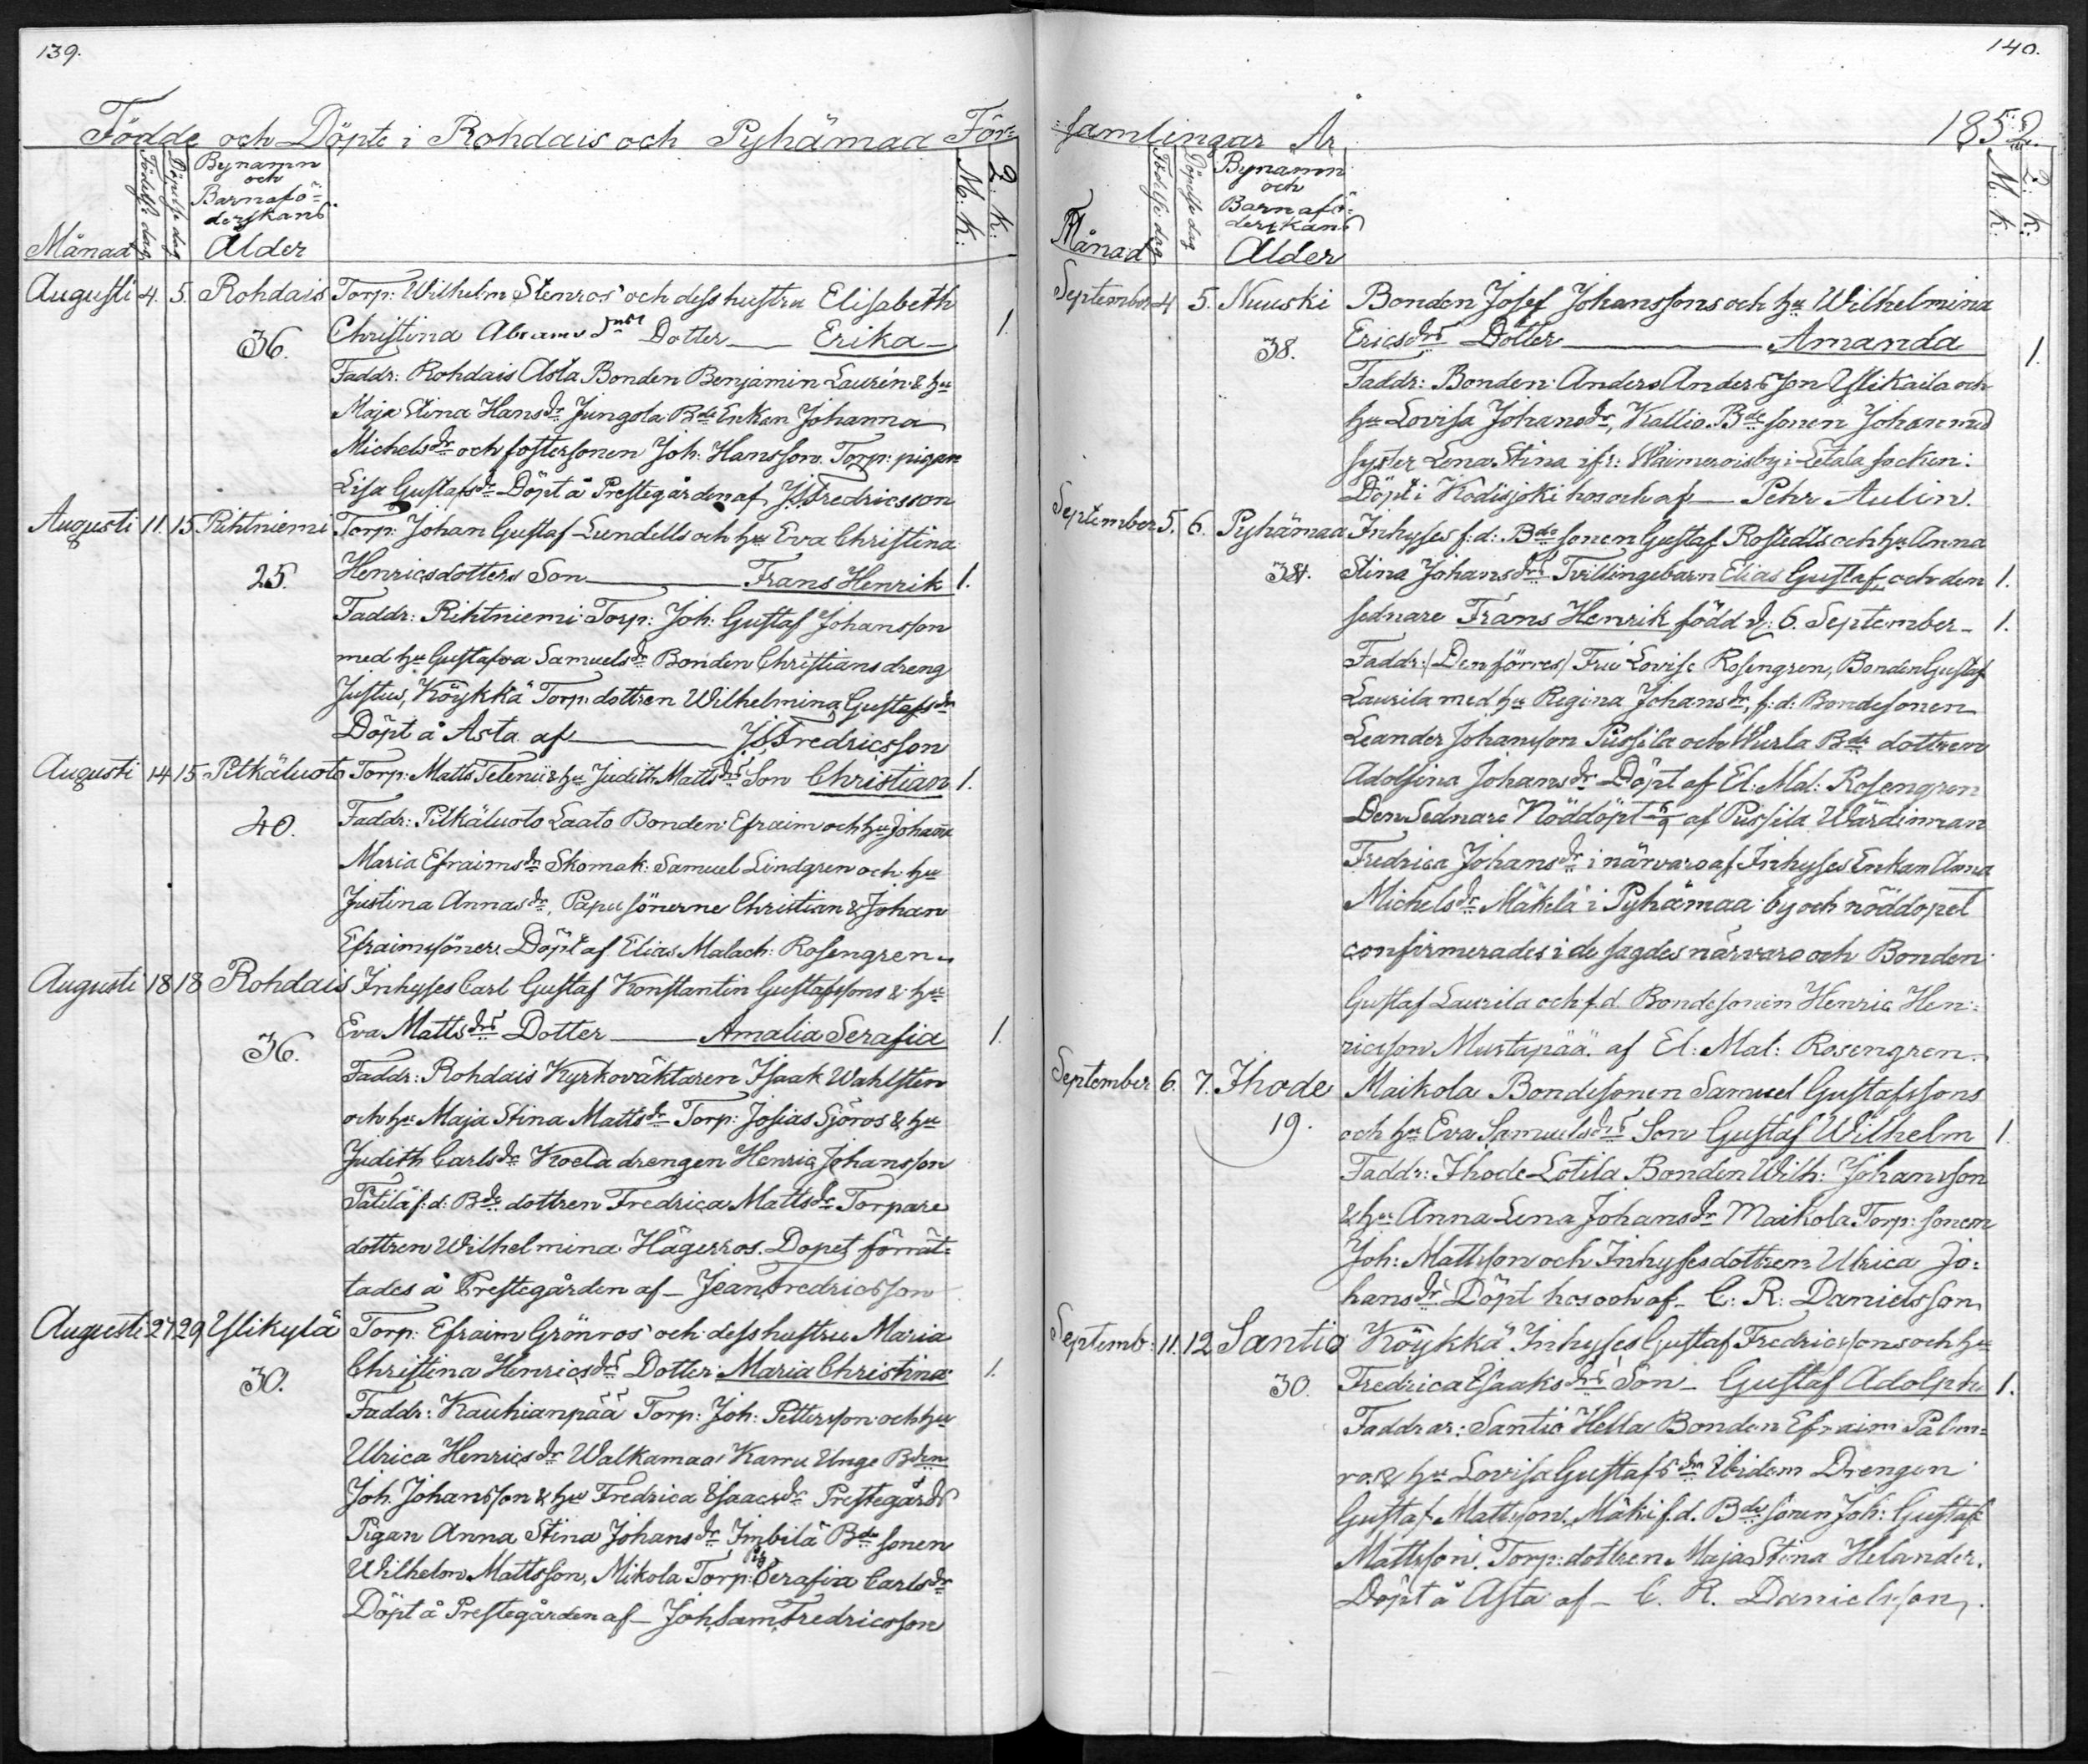 139.
Födde och Döpte i Rohdais och Pyhämaa För=
Månad
Födelse dag
Döpelse dag
Bynamn
och
Barnafö=
derskans
Ålder
M. K:
Q: K:
Augusti 4. 5. Rohdais Torp: Wilhelm Stenros' och dess hustru Elisabeth
36. Christina Abrams Dotter Erika 1.
Faddr: Rohdais Asta Bonden Benjamin Laurén & hu
Maja Stina Hansdr Jungola Bde Enkan Johanna
Michelsdr och fostersonen Joh: Hansson. Torp: pigan
Lisa Gustafsdr Döpt å Prestegården af J S Fredricsson
Augusti 11. 15 Rihtniemi Torp: Johan Gustaf Lundells och hu Eva Christina
25. Henricsdotters Son Frans Henrik 1.
Faddr: Rihtniemi Torp: Joh: Gustaf Johansson
med hu Gustafva Samuelsdr Bonden Christians dreng
Justus, Köykkä Torp: dottren Wilhelmina Gustafsdr
Döpt å Asta af J S Fredricsson
Augusti 14 15 Pitkäluoto Torp: Matts Telenii & hu Judith Mattsdrs Son Christian 1.
40. Faddr: Pitkäluoto Laato Bonden Efraim och hu Johanna
Maria Efraimsdr Skomak: Samuel Lindgren och hu
Justina Annasdr, Papu sönerne Christian & Johan
Efraimsöner. Döpt af Elias Malach: Rosengren
Augusti 18 18 Rohdais Inhyses Carl Gustaf Konstantin Gustafssons & hu
36. Eva Mattsdrs Dotter Amalia Serafia 1.
Faddr: Rohdais Kyrkoväktaren Isaak Wahlsten
och hu Maja Stina Mattsdr Torp: Josias Sjöros & hu
Judith Carlsdr Koela drengen Henric Johansson
Tätilä f: d: Bde dottren Fredrica Mattsdr Torpare
dottren Wilhelmina Hägerros. Dopet förrät=
tades å Prestegården af Jean Fredricsson
Augusti 27 29 Ylikylä Torp: Efraim Grönros' och dess hustru Maria
30. Christina Henricsdrs Dotter Maria Christina 1.
Faddr: Kauhianpää Torp: Joh: Pettersson och hu
Ulrica Henricsdr Walkamaa Karru Unge Bden
Joh. Johansson & hu Fredrica Isaacsdr Prestegårds
Pigan Anna Stina Johansdr Imbilä Bde sonen
Wilhelm Mattsson, Mikola Torp: Serafia Carlsdr
Döpt å Prestegården af Joh Sam Fredricsson
140.
samlingar År 1852.
Månad
Födelse dag
Döpelse dag
Bynamn
och
Barnafö=
derskans
Ålder
M: K:
Q: K:
September 4 5. Nuuski Bonden Josef Johanssons och hu Wilhelmina
38. Ericsdrs Dotter Amanda 1.
Faddr: Bonden Anders Andersson Ylikaila och
hu Lovisa Johansdr, Kallio Bde sonen Johan med
syster Lena Stina ifr: Waimeroisby i Letala socken:
Döpt i Kodisjoki hos och af Pehr Aulin.
September 5. 6. Pyhämaa Inhyses f: d: Bde sonen Gustaf Rostedts och hu Anna
Stina Johansdrs Tvillingebarn Elias Gustaf, och den 1.
sednare Frans Henrik född d: 6. September 1.
Faddr: (Den förres) Fru Lovise Rosengren, Bonden Gustaf
Laurila med hu Regina Johansdr, f: d: Bondesonen
Leander Johansson Pussila och Wurla Bde dottren
Adolfina Johansdr Döpt af El: Mal: Rosengren
Den Sednare Nöddöpt 6/9 af Pussila Wärdinnan
Fredrica Johansdr i närvaro af Inhyses Enkan Anna
Michelsdr Mäkelä i Pyhämaa by och nöddopet
confirmerades i de sagdes närvaro och Bonden
Gustaf Laurila och f. d. Bondesonen Henric Hen=
ricsson Mustapää. af El: Mal: Rosengren.
September 6. 7. Ihode Maikola Bondesonen Samuel Gustafssons
19. och hu Eva Samuelsdrs Son Gustaf Wilhelm 1.
Faddr: Ihode Lotila Bonden Wilh: Johansson
& hu Anna Lena Johansdr Maikola Torp: sonen
Joh: Mattsson och Inhysesdottren Ulrica Jo=
hansdr Döpt hos och af C: R: Danielsson
Septemb: 11. 12 Santio Köykkä Inhyses Gustaf Fredricssons och hu
30. Fredrica Isaaksdrs Son Gustaf Adolph 1.
Faddrar: Santio Hella Bonden Efraim Palm=
ros & hu Lovisa Gustafsdr Ibidem Drengen
Gustaf Mattsson. Mäki f. d. Bde sonen Joh: Gustaf
Mattsson. Torp: dottren Maja Stina Helander.
Döpt å Asta af C. R. Danielsson.